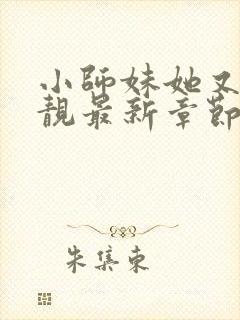 小師妹她又
靚最新章節
朱集東